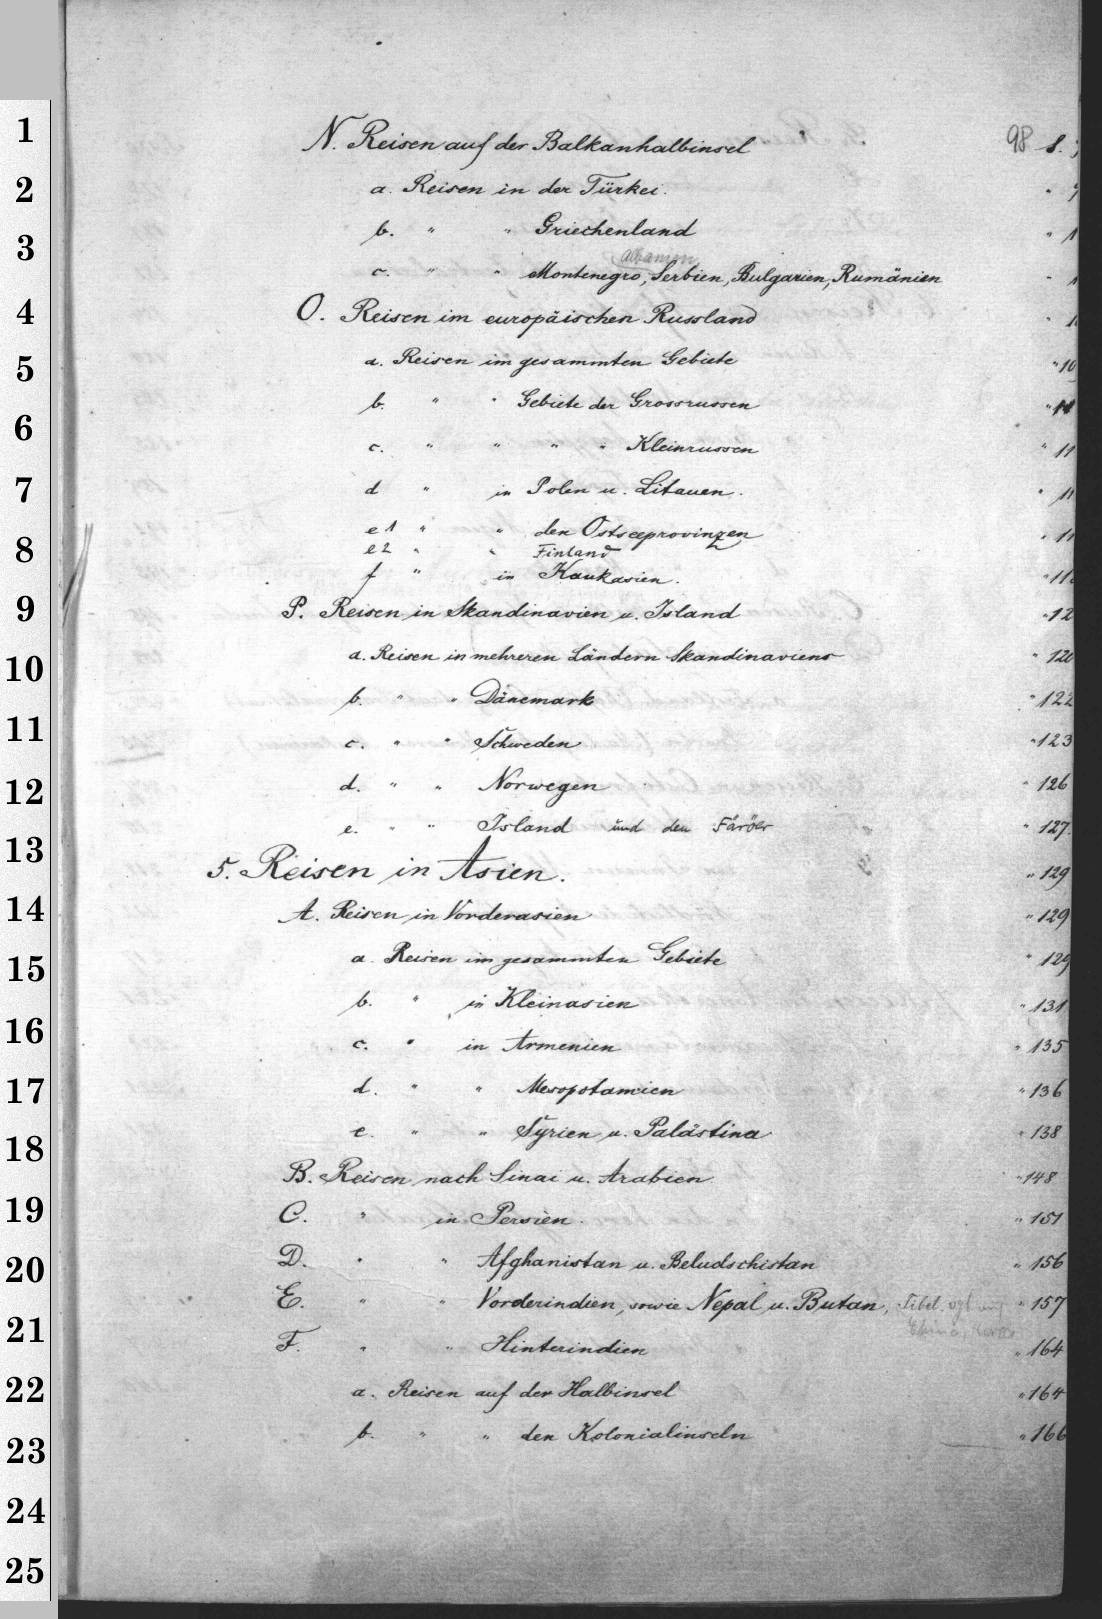 N. Reisen auf der Balkanhalbinsel 98 S.
a. Reisen in der Türkei. "
b. " " Griechenland "
Albanien
c. " " Montenegro, Serbien, Bulgarien, Rumänien "
O. Reisen im europäischen Russland "
a. Reisen im gesammten Gebiete " 10
b. " " Gebiete der Grossrussen " 11
c. " " " " Kleinrussen " 11
d " in Polen u. Litauen. " 11
e1 " " den Ostseeprovinzen " 11
e2 " " Finland
f " in Kaukasien. " 11
P. Reisen in Skandinavien u. Island " 12
a. Reisen in mehreren Ländern Skandinaviens " 120
b. " " Dänemark " 122
c. " " Schweden " 123
d. " " Norwegen " 126
e. " " Island und den Färöer " 127.
5. Reisen in Asien. " 129
A. Reisen in Vorderasien " 129
a. Reisen im gesammten Gebiete " 129
b. " in Kleinasien " 131
c. " in Armenien " 135
d. " " Mesopotamien " 136
e. " " Syrien u. Palästina " 138
B. Reisen nach Sinai u. Arabien " 148
C. " in Persien. " 151
D. " " Afghanistan u. Beludschistan " 156
E. " " Vorderindien, sowie Nepal u. Butan, Tibet, vgl " 157
China,
F. " " Hinterindien " 164
a. Reisen auf der Halbinsel " 164
b. " " den Kolonialinseln " 166
1
2
3
4
5
6
7
8
9
10
11
12
13
14
15
16
17
18
19
20
21
22
23
24
25